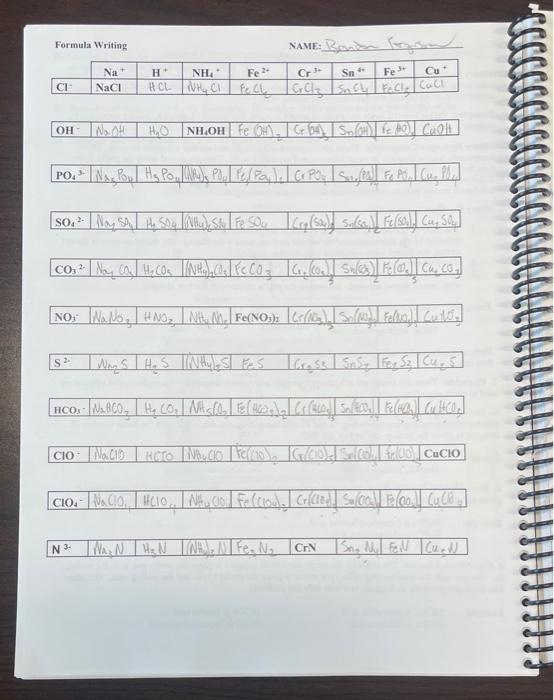 Formula Writing NAME:
Na + H + NH₄ + Fe 2+ Cr 3+ Sn 4+ Fe 3+ Cu +
Cl- NaCl HCL NH4 Cl Fe Cl2 CrCl3 SnCl4 FeCl3 CuCl
OH - NaOH H2O NH₄OH Fe (OH)2 Cr(OH)3 Sn(OH) Fe (HO)3 CuOH
PO₄ 3- Na3 PO4 H3 PO4 (NH4)3 PO4 Fe3(PO4)2 Cr PO4 Sn3(PO4) Fe PO4 Cu3 PO4
SO₄ 2- Na2 SO4 H2 SO4 (NH4)2SO4 Fe SO4 Cr2(SO4)3 Sn(SO4)2 Fe(SO4)3 Cu2 SO4
CO₃ 2- Na2 CO3 H2CO3 (NH4)2CO3 FeCO3 Cr2(CO3)3 Sn(CO3)2 Cu2 CO3
NO₃- NaNO3 HNO3 NH4 NO3 Fe(NO₃)₂ Cr(NO3)3 Sn(NO3) Fe(NO3)3 CuNO3
S 2- Na2 S H2 S (NH4)2S FeS Cr2S3 SnS2 Fe2 S3 Cu2 S
HCO₃- NaHCO3 H2 CO3 Fe(HCO3)2 Cr(HCO3) Sn(HCO3) Fe(HCO3) CuHCO3
ClO - NaClO HClO NH4ClO Fe(ClO)2 Cr(ClO)3 Sn(ClO)4 Fe(ClO)3 CuClO
ClO₄- NaClO4 HClO4 NH4ClO4 Fe(ClO4)2 Cr(ClO4) Sn(ClO4) Fe(ClO4) CuClO4
N 3- Na3N H3N (NH4)3 N Fe3 N2 CrN Sn3 N4 FeN Cu3N